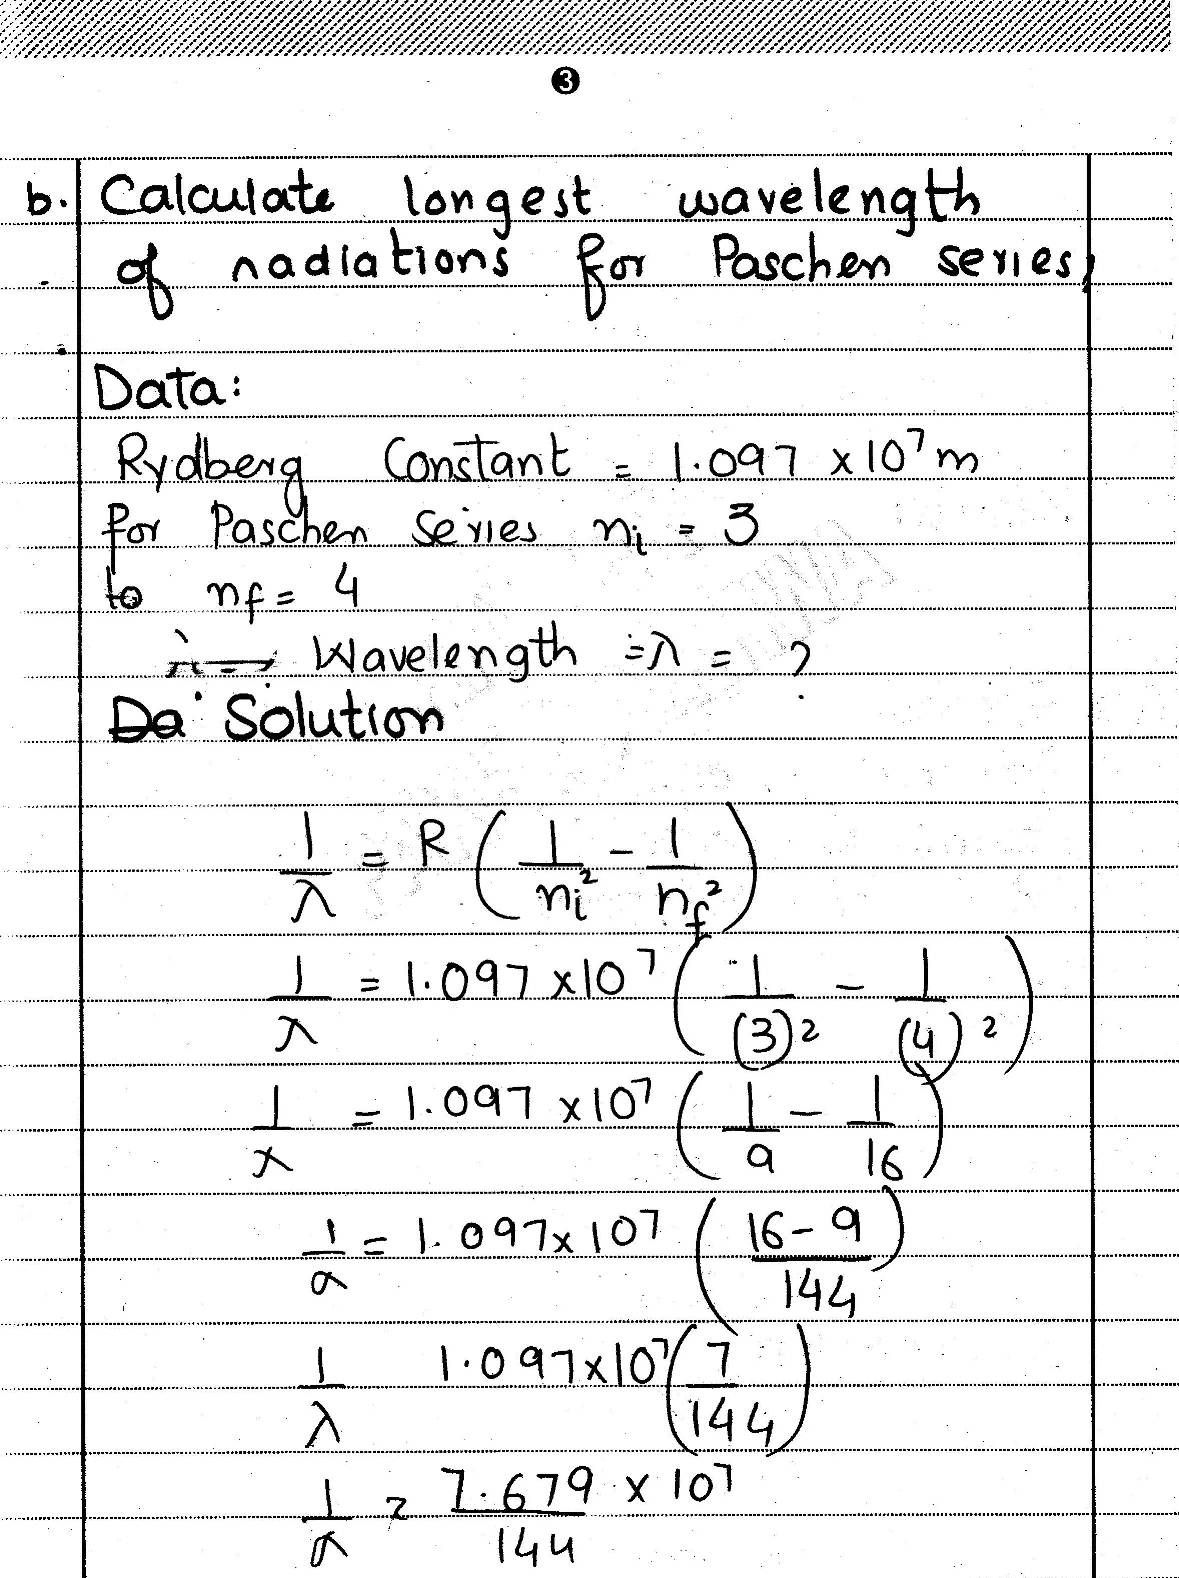 3
b. Calculate longest wavelength
of radiations for Paschen series,
Data:
Rydberg Constant = 1.097 x 10⁷ m
for Paschen Series nᵢ = 3
to nf = 4
Wavelength = λ = ?
Da Solution
1/λ = R (1/nᵢ² - 1/nf²)
1/λ = 1.097 x 10⁷ (1/(3)² - 1/(4)²)
1/λ = 1.097 x 10⁷ (1/9 - 1/16)
1/λ = 1.097 x 10⁷ (16 - 9/144)
1/λ 1.097 x 10⁷ (7/144)
1/λ = 7.679 x 10⁷/144